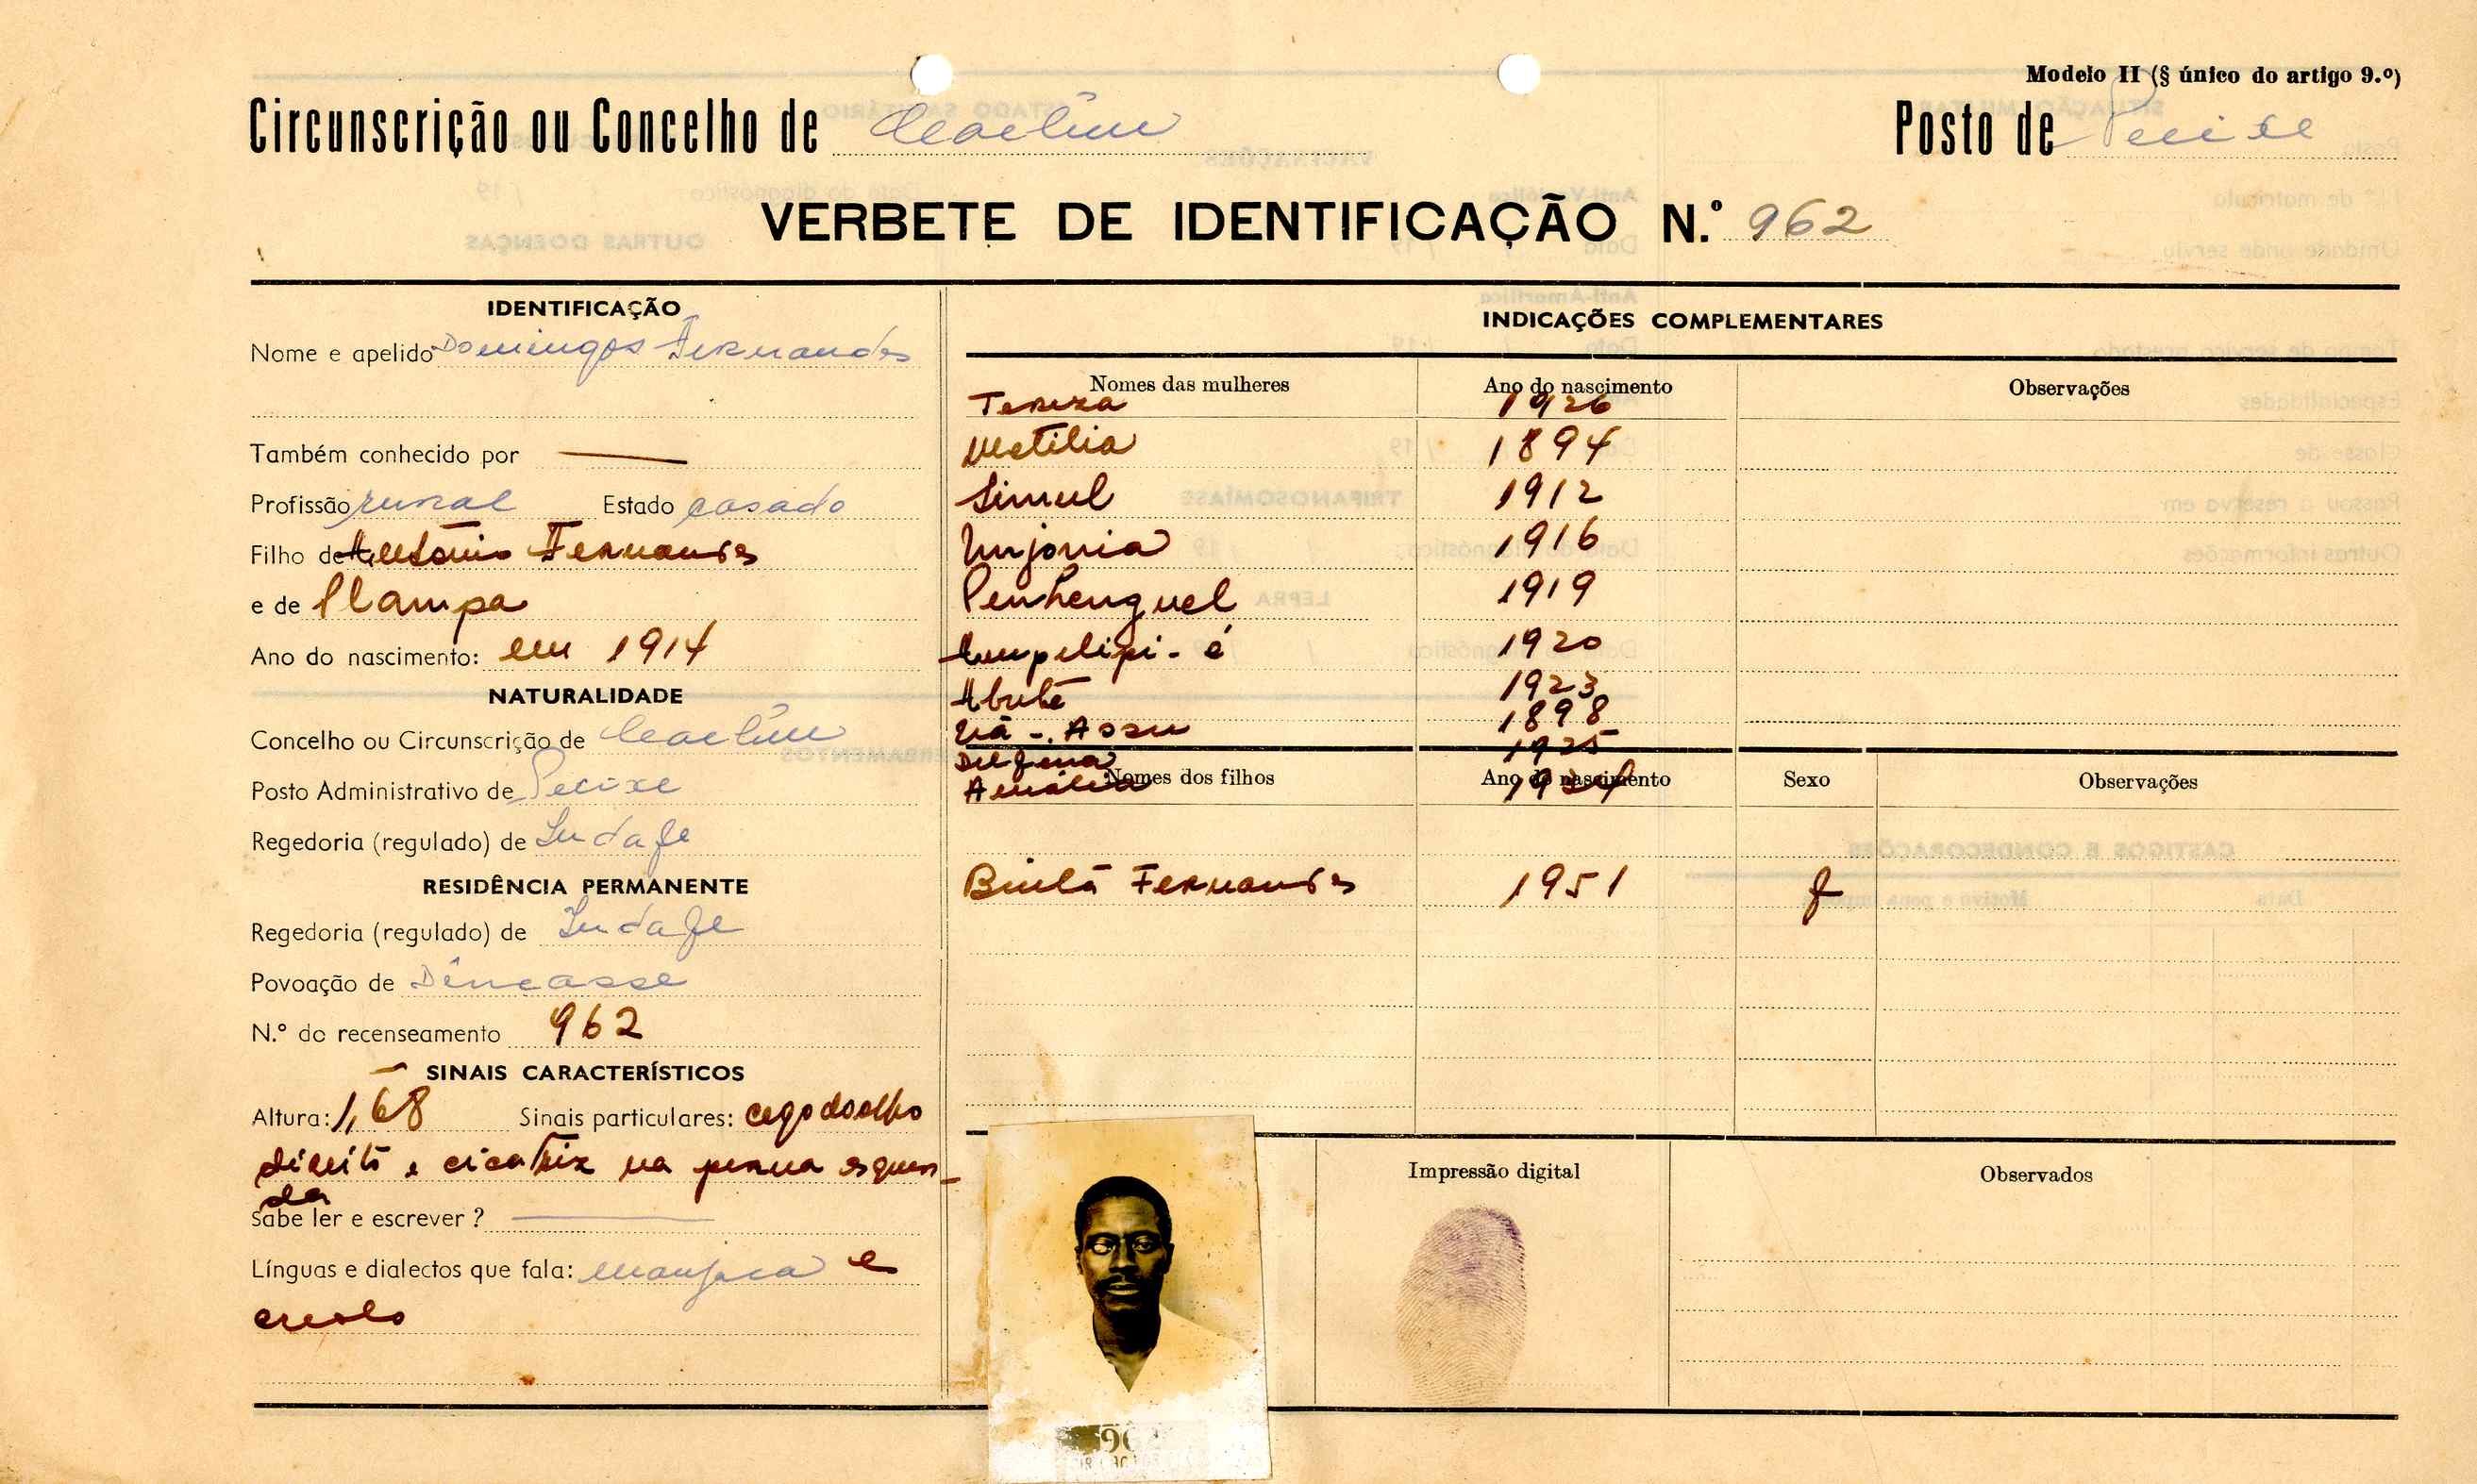 Modelo II (§ único do artigo 9.º)
Circunscrição ou Concelho de Cacheu
Posto de Pecixe
VERBETE DE IDENTIFICAÇÃO N.º 962
IDENTIFICAÇÃO
Nome e apelido Domingos Fernandes
Também conhecido por —
Profissão rural Estado casado
Filho de António Fernandes
e de
Ano do nascimento: em 1914
NATURALIDADE
Concelho ou Circunscrição de Cacheu
Posto Administrativo de Pecixe
Regedoria (regulado) de Indafe
RESIDÊNCIA PERMANENTE
Regedoria (regulado) de Indafe
Povoação de
N.º do recenseamento 962
SINAIS CARACTERÍSTICOS
Altura: 1,68 Sinais particulares: cego do olho
direito e cicatriz na perna esquer-
da
Sabe ler e escrever ? —
Línguas e dialectos que fala: manjaca e
creolo
INDICAÇÕES COMPLEMENTARES
Nomes das mulheres Ano do nascimento Observações
Tereza 1926
1894
1912
1916
1919
1920
1923
1898
1925
Nomes dos filhos Ano do nascimento Sexo Observações
Fernandes 1951 f
Impressão digital
Observados